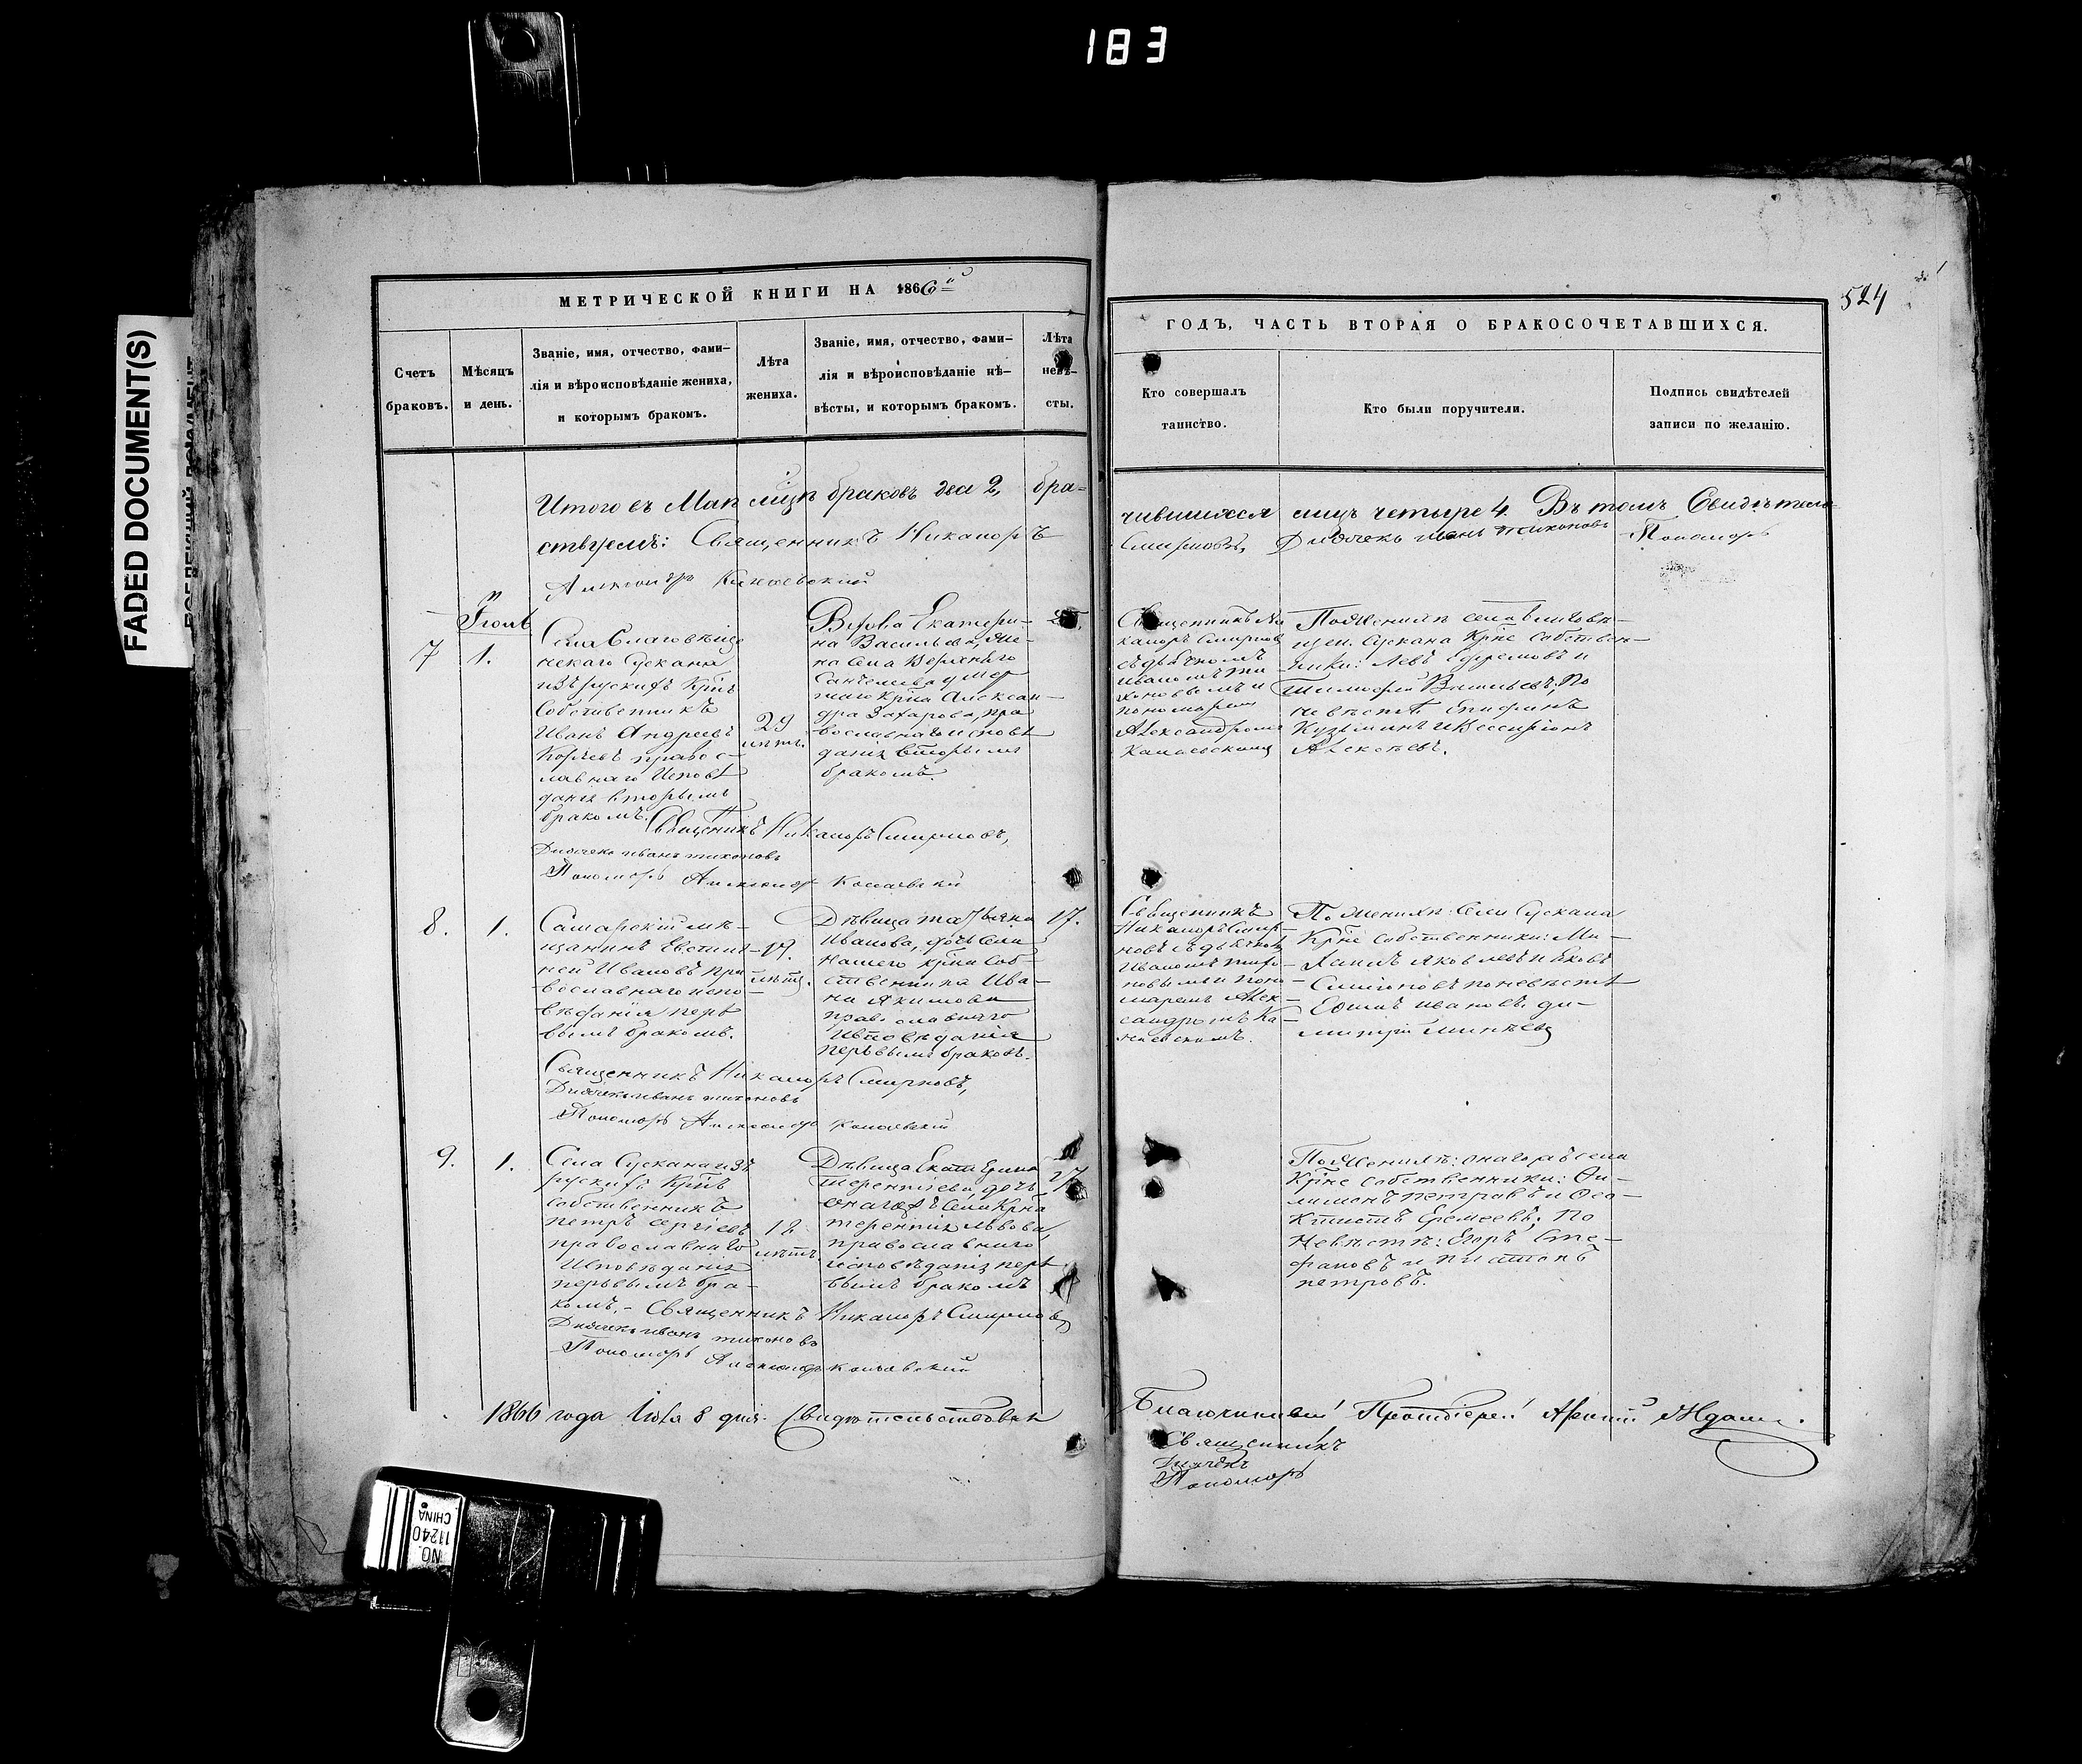 183
FADED DOCUMENT(S)
524
МЕТРИЧЕСКОЙ КНИГИ НА 1866й
ГОДЪ, ЧАСТЬ ВТОРАЯ О БРАКОСОЧЕТАВШИХСЯ.
Счетъ
браковъ.
Мѣсяцъ
и день.
Званіе, имя, отчество, фами-
лія и вѣроисповѣданіе жениха,
и которымъ бракомъ.
Лѣта
жениха.
Званіе, имя, отчество, фами-
лія и вѣроисповѣданіе нѣ-
вѣсты, и которымъ бракомъ.
Лѣта
невѣ-
сты.
Кто совершалъ
таинство.
Кто были поручители.
Подпись свидѣтелей
записи по желанію.
Итого въ Маѣ браковъ два 2, бра-
чившихся лицъ четыре 4. Въ томъ Свидѣтель-
ствуемъ: Священникъ Никаноръ
Смирновъ, Дьячекъ Иванъ Тихоновъ Пономарь
Александръ
7
1.
Села Благовѣще
нскаго Сускана
изъ рускихъ Крнъ
Собственникъ
Иванъ Андреевъ
правос-
лавнаго Исповѣ
данія вторымъ
бракомъ.
29
лѣтъ.
Вдова Екатери-
на Васильева, же-
на села Верхняго
Санчелеева умер
шаго Крна Алексан-
дра Захарова, пра
вославнаго исповѣ
данія вторымъ
бракомъ.
Священникъ Ни
каноръ Смирнов
съ дьячкомъ
Иваномъ Ти
хоновымъ и
пономаремъ
Александромъ
По Женихѣ села
Сускана Крне собствен-
ники: Левъ Ефремовъ и
Тимофей Васильевъ; По
невѣстѣ
Кузьминъ и Виссаріонъ
Алексѣевъ.
Священникъ Никаноръ Смирновъ,
Дьячекъ Иванъ Тихоновъ
Пономарь Александръ
8.
1.
Самарскій мѣ-
щанинъ Евстиг-
ней Ивановъ пра
вославнаго испо-
вѣданія пер
вымъ бракомъ.
19.
лѣтъ.
Дѣвица Татьяна
Иванова, дочь села
нашего крна Соб-
ственника Ива-
на Якимова
православнаго
Исповѣданія
первымъ бракомъ.
17.
Священникъ
Никаноръ Смир-
новъ съ дьячкомъ
Иваномъ Тихо-
новымъ и поно-
маремъ Алек-
сандромъ Ка-
По Женихѣ: Села Сускана
Крне Собственники: Ми-
хаилъ Яковлевъ и Яковъ
Симіоновъ по невѣстѣ
Ефимъ Ивановъ, Ди-
митрій
Священникъ Никаноръ Смирновъ,
Дьячекъ Иванъ Тихоновъ
Пономарь Александръ
9.
1.
Села Сускана изъ
рускихъ Крнъ
собственникъ
Петръ Сергіевъ
православнаго
Исповѣданія
первымъ бра-
комъ.
18
лѣтъ.
Дѣвица Екатерина
Терентіева, дочь
онагожъ села Крна
Терентія Львова,
православнаго
исповѣданія перв
вымъ бракомъ
17
По Женихѣ: онагожъ села
Крне собственники: Фи-
лимонъ Петровъ и Фео-
ктистъ Еремеевъ; По
Невѣстѣ: Егоръ Сте-
фановъ и Платонъ
Петровъ.
Священникъ Никаноръ Смирновъ
Дьячекъ Иванъ Тихоновъ
Пономарь Александръ
1866 года Іюля 8 дня. Свидѣтельствовалъ
Благочинный Протоіерей
Священникъ
Дьячекъ
Пономарь
NO.
11240
CHINA